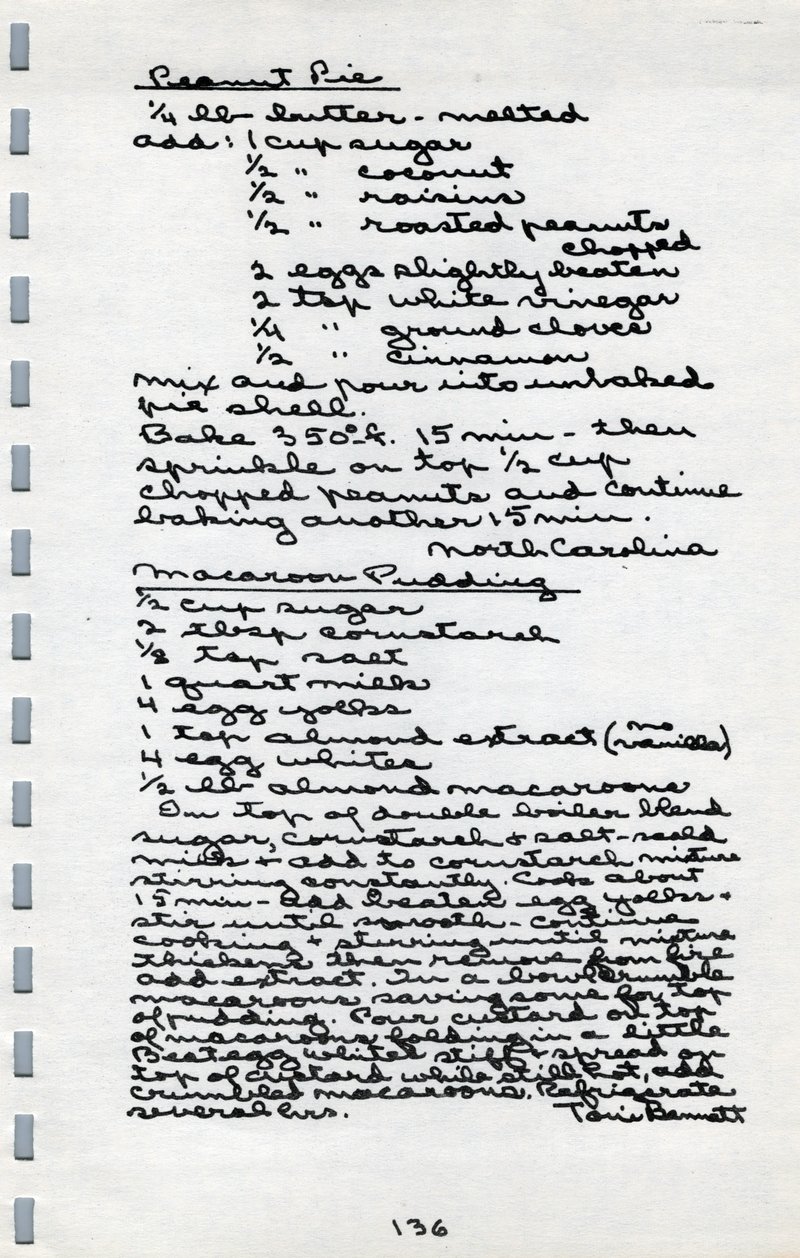 Peanut Pie
1/4 lb butter - melted
add: 1 cup sugar
1/2 " coconut
1/2 " raisins
1/2 " roasted peanuts
chopped
2 eggs slightly beaten
2 tsp white vinegar
1/4 " ground cloves
1/2 " cinnamon
Mix and pour into unbaked
pie shell.
Bake 350° F. 15 min - then
sprinkle on top 1/2 cup
chopped peanuts and continue
baking another 15 min.
North Carolina
Macaroon Pudding
1/2 cup sugar
2 tbsp cornstarch
1/8 tsp salt
1 quart milk
4 egg yolks
1 tsp almond extract (no vanilla)
4 egg whites
1/2 lb almond macaroons
In top of double boiler blend
sugar, cornstarch + salt - scald
milk + add to cornstarch mixture
stirring constantly. Cook about
15 min - add beaten egg yolks +
stir until smooth - continue
cooking + stirring until mixture
thickens then remove from fire
add extract. In a bowl crumble
macaroons saving some for top
of pudding. Pour custard on top
of macaroons folding in a little
Beat egg whites stiff + spread on
top of custard while still hot, add
crumbled macaroons. Refrigerate
several hrs.
Toni Bennett
136